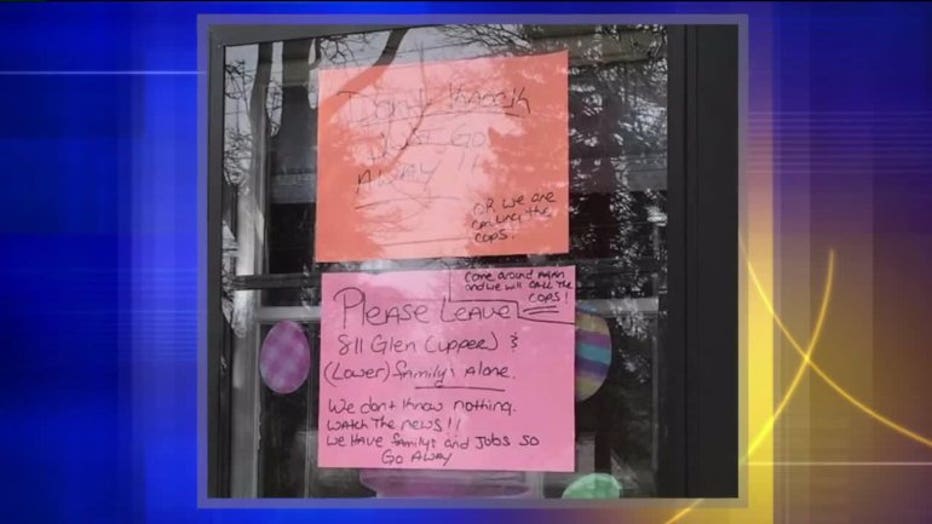 Don't Knock
Just Go
Away !!
OR we are
calling the
cops.
Come around again
and we will call the
cops!
Please Leave
811 Glen (upper) &
(Lower) family's Alone.
We dont know nothing.
watch the news!!
We Have family's and Jobs so
Go Away